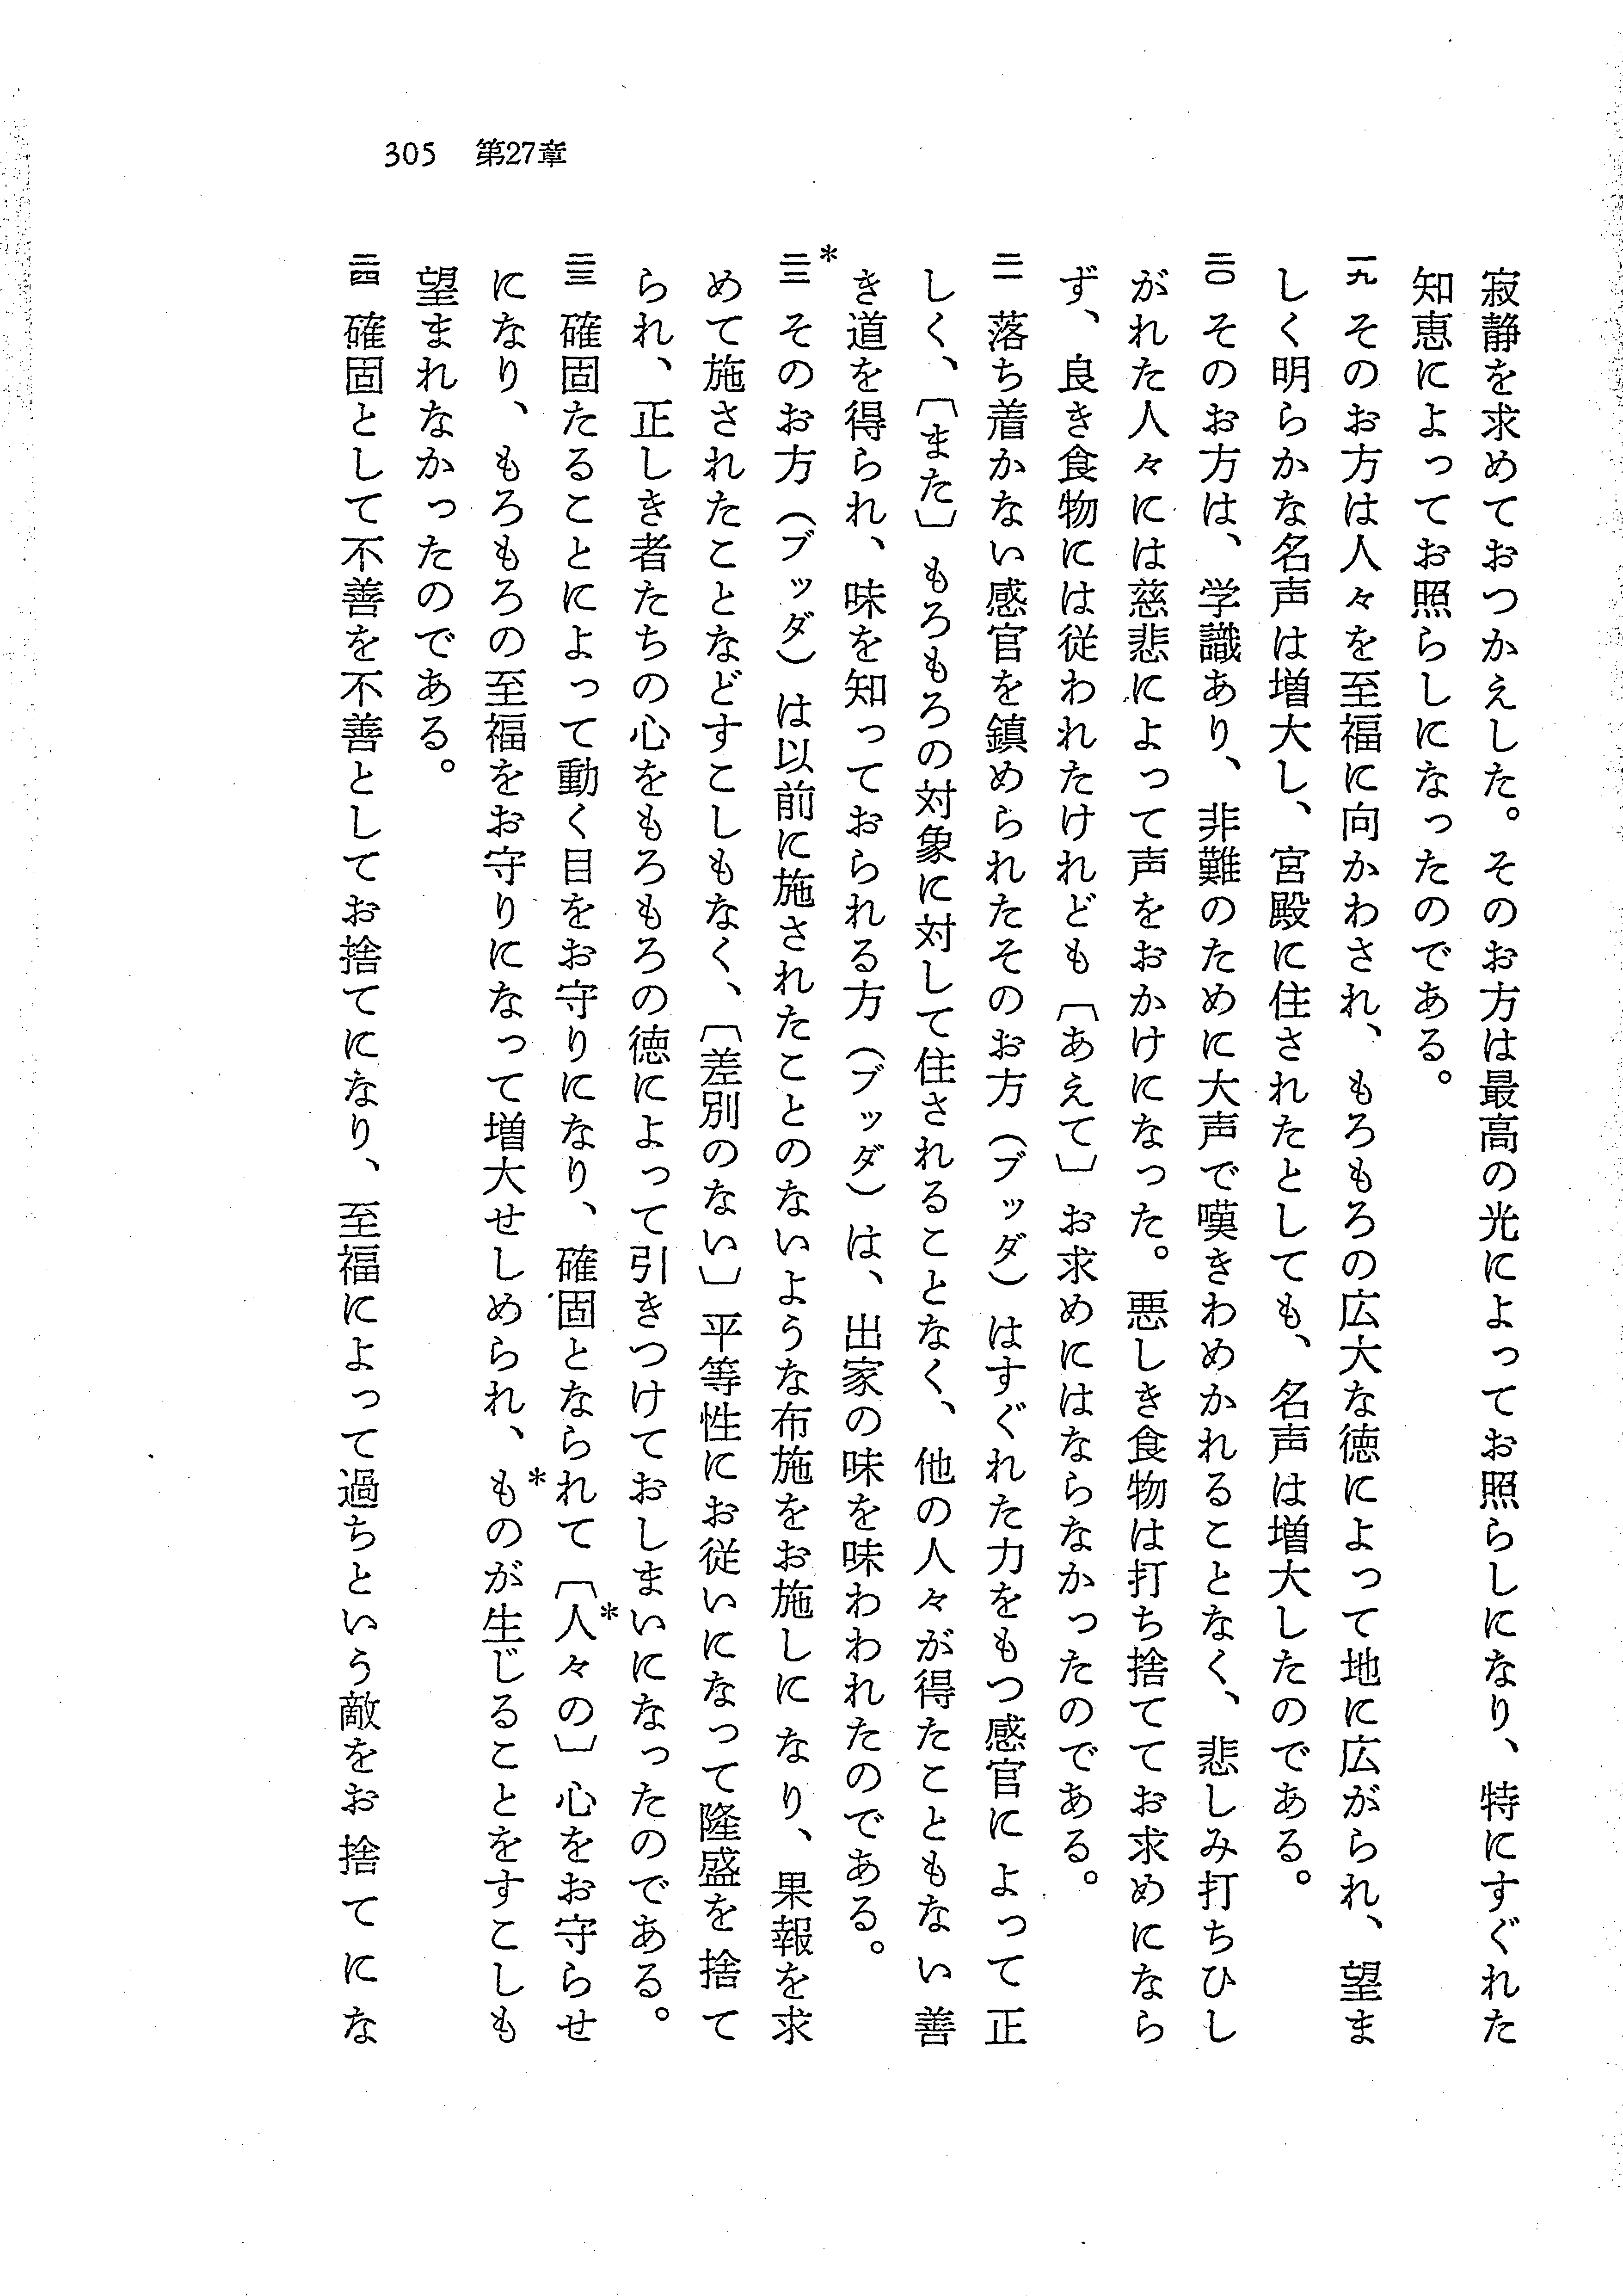 305 第27章
寂静を求めておつかえした。そのお方は最高の光によってお照らしになり、特にすぐれた
知恵によってお照らしになったのである。
一九 そのお方は人々を至福に向かわされ、もろもろの広大な徳によって地に広がられ、望ま
しく明らかな名声は増大し、宮殿に住されたとしても、名声は増大したのである。
二〇 そのお方は、学識あり、非難のために大声で嘆きわめかれることなく、悲しみ打ちひし
がれた人々には慈悲によって声をおかけになった。悪しき食物は打ち捨ててお求めになら
ず、良き食物には従われたけれども〔あえて〕お求めにはならなかったのである。
二一 落ち着かない感官を鎮められたそのお方（ブッダ）はすぐれた力をもつ感官によって正
しく、〔また〕もろもろの対象に対して住されることなく、他の人々が得たこともない善
き道を得られ、味を知っておられる方（ブッダ）は、出家の味を味わわれたのである。
*二二 そのお方（ブッダ）は以前に施されたことのないような布施をお施しになり、果報を求
めて施されたことなどすこしもなく、〔差別のない〕平等性にお従いになって隆盛を捨て
られ、正しき者たちの心をもろもろの徳によって引きつけておしまいになったのである。
二三 確固たることによって動く目をお守りになり、確固となられて〔*人々の〕心をお守らせ
になり、もろもろの至福をお守りになって増大せしめられ、*ものが生じることをすこしも
望まれなかったのである。
二四 確固として不善を不善としてお捨てになり、至福によって過ちという敵をお捨てにな